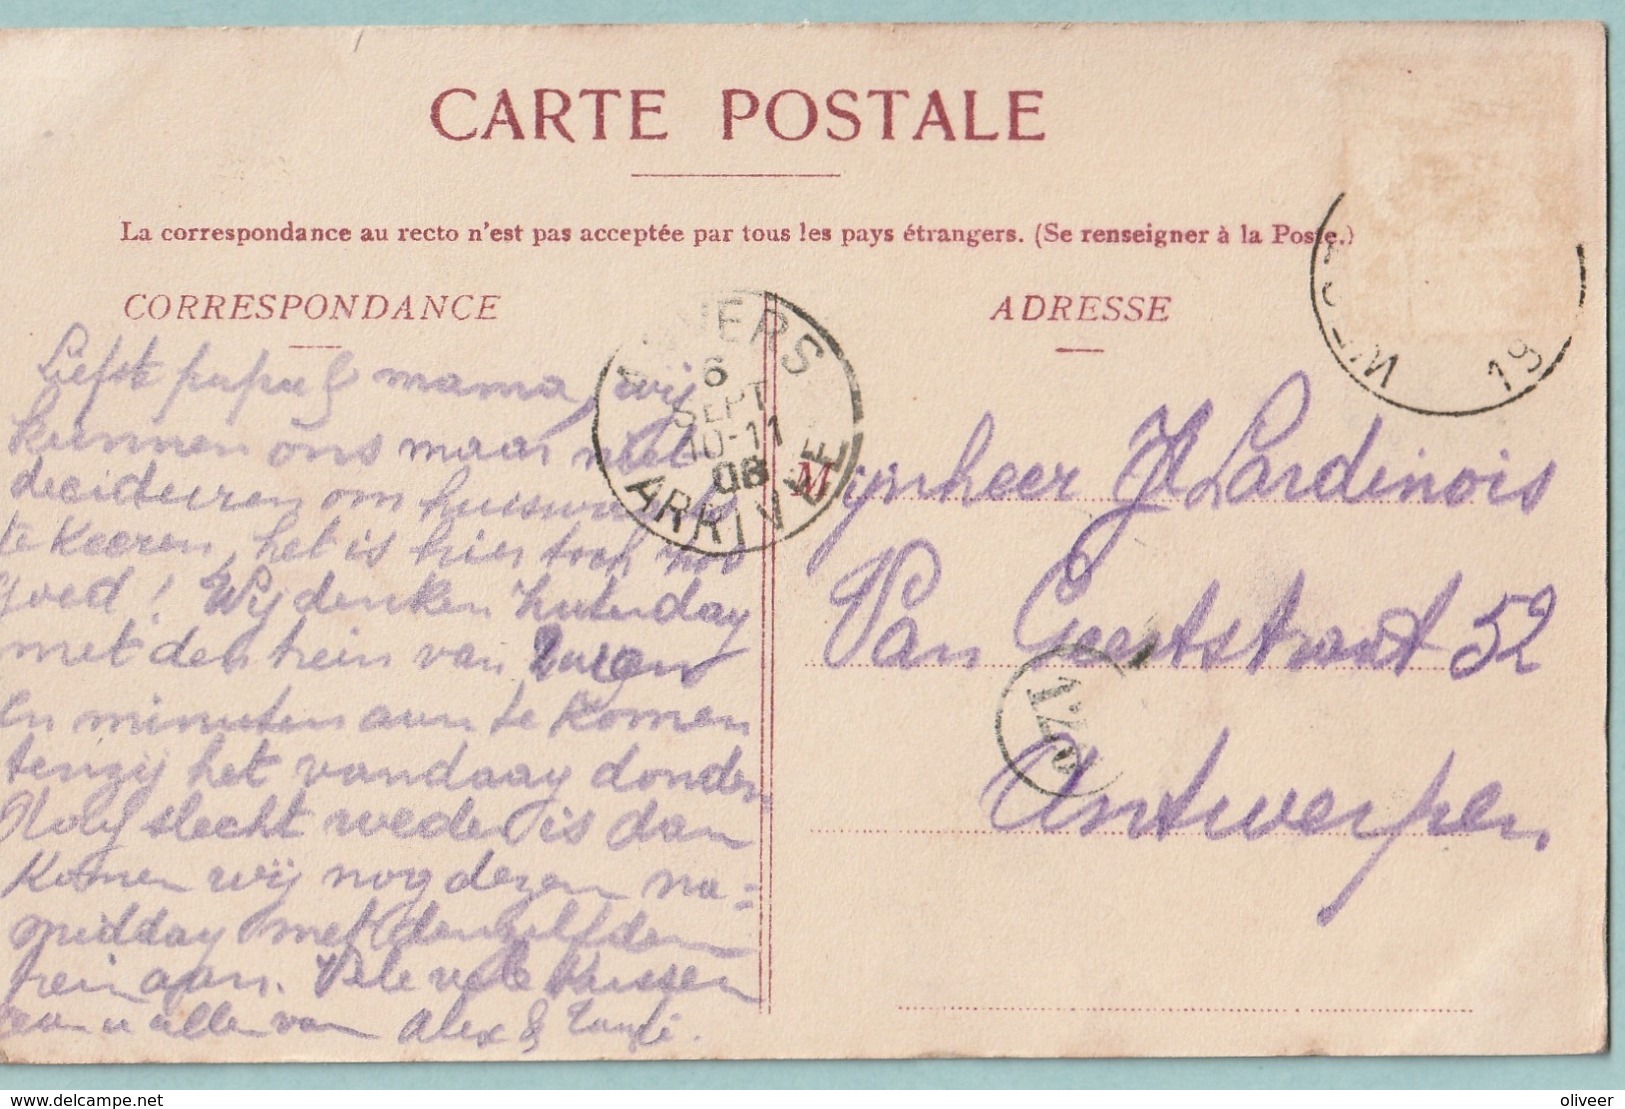 CARTE POSTALE
La correspondance au recto n'est pas acceptée par tous les pays étrangers. (Se renseigner à la Poste.)
CORRESPONDANCE
Liefste papa & mama, wij
kunnen ons maar niet
decideeren om huiswaarts
te keeren, het is hier toch zoo
goed! Wij denken Zaterdag
met den trein van
en minuten aan te komen
tenzij het vandaag donder
slecht weder is dan
komen wij nog dezen na=
middag met denzelfden
trein aan. Vele vele kussen
aan u allen van Alex &
ANVERS
6
SEPT
10-11
08
ARRIVÉE
ADRESSE
Mijnheer Lardinois
Van Geertstraat 52
Antwerpen
19
delcampe.net
oliveer